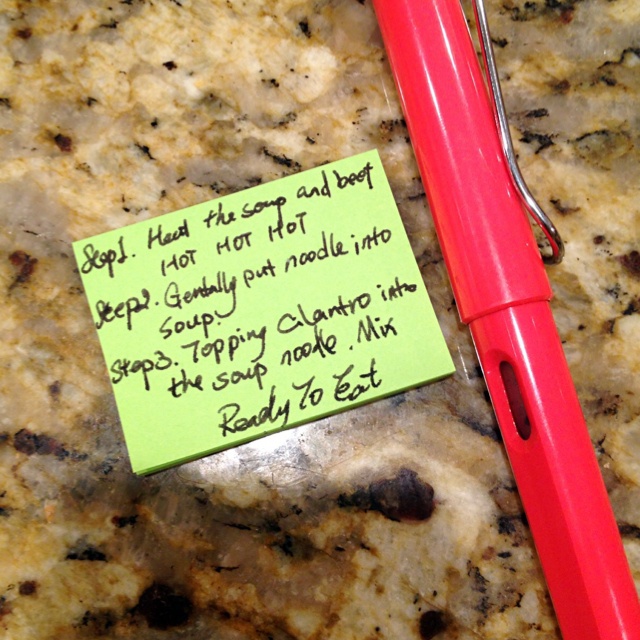 Step1. Heat the soup and beef
HOT HOT HOT
Steep2. Gentally put noodle into
soup.
Step3. Topping Cilantro into
the soup noodle. Mix
Ready To Eat